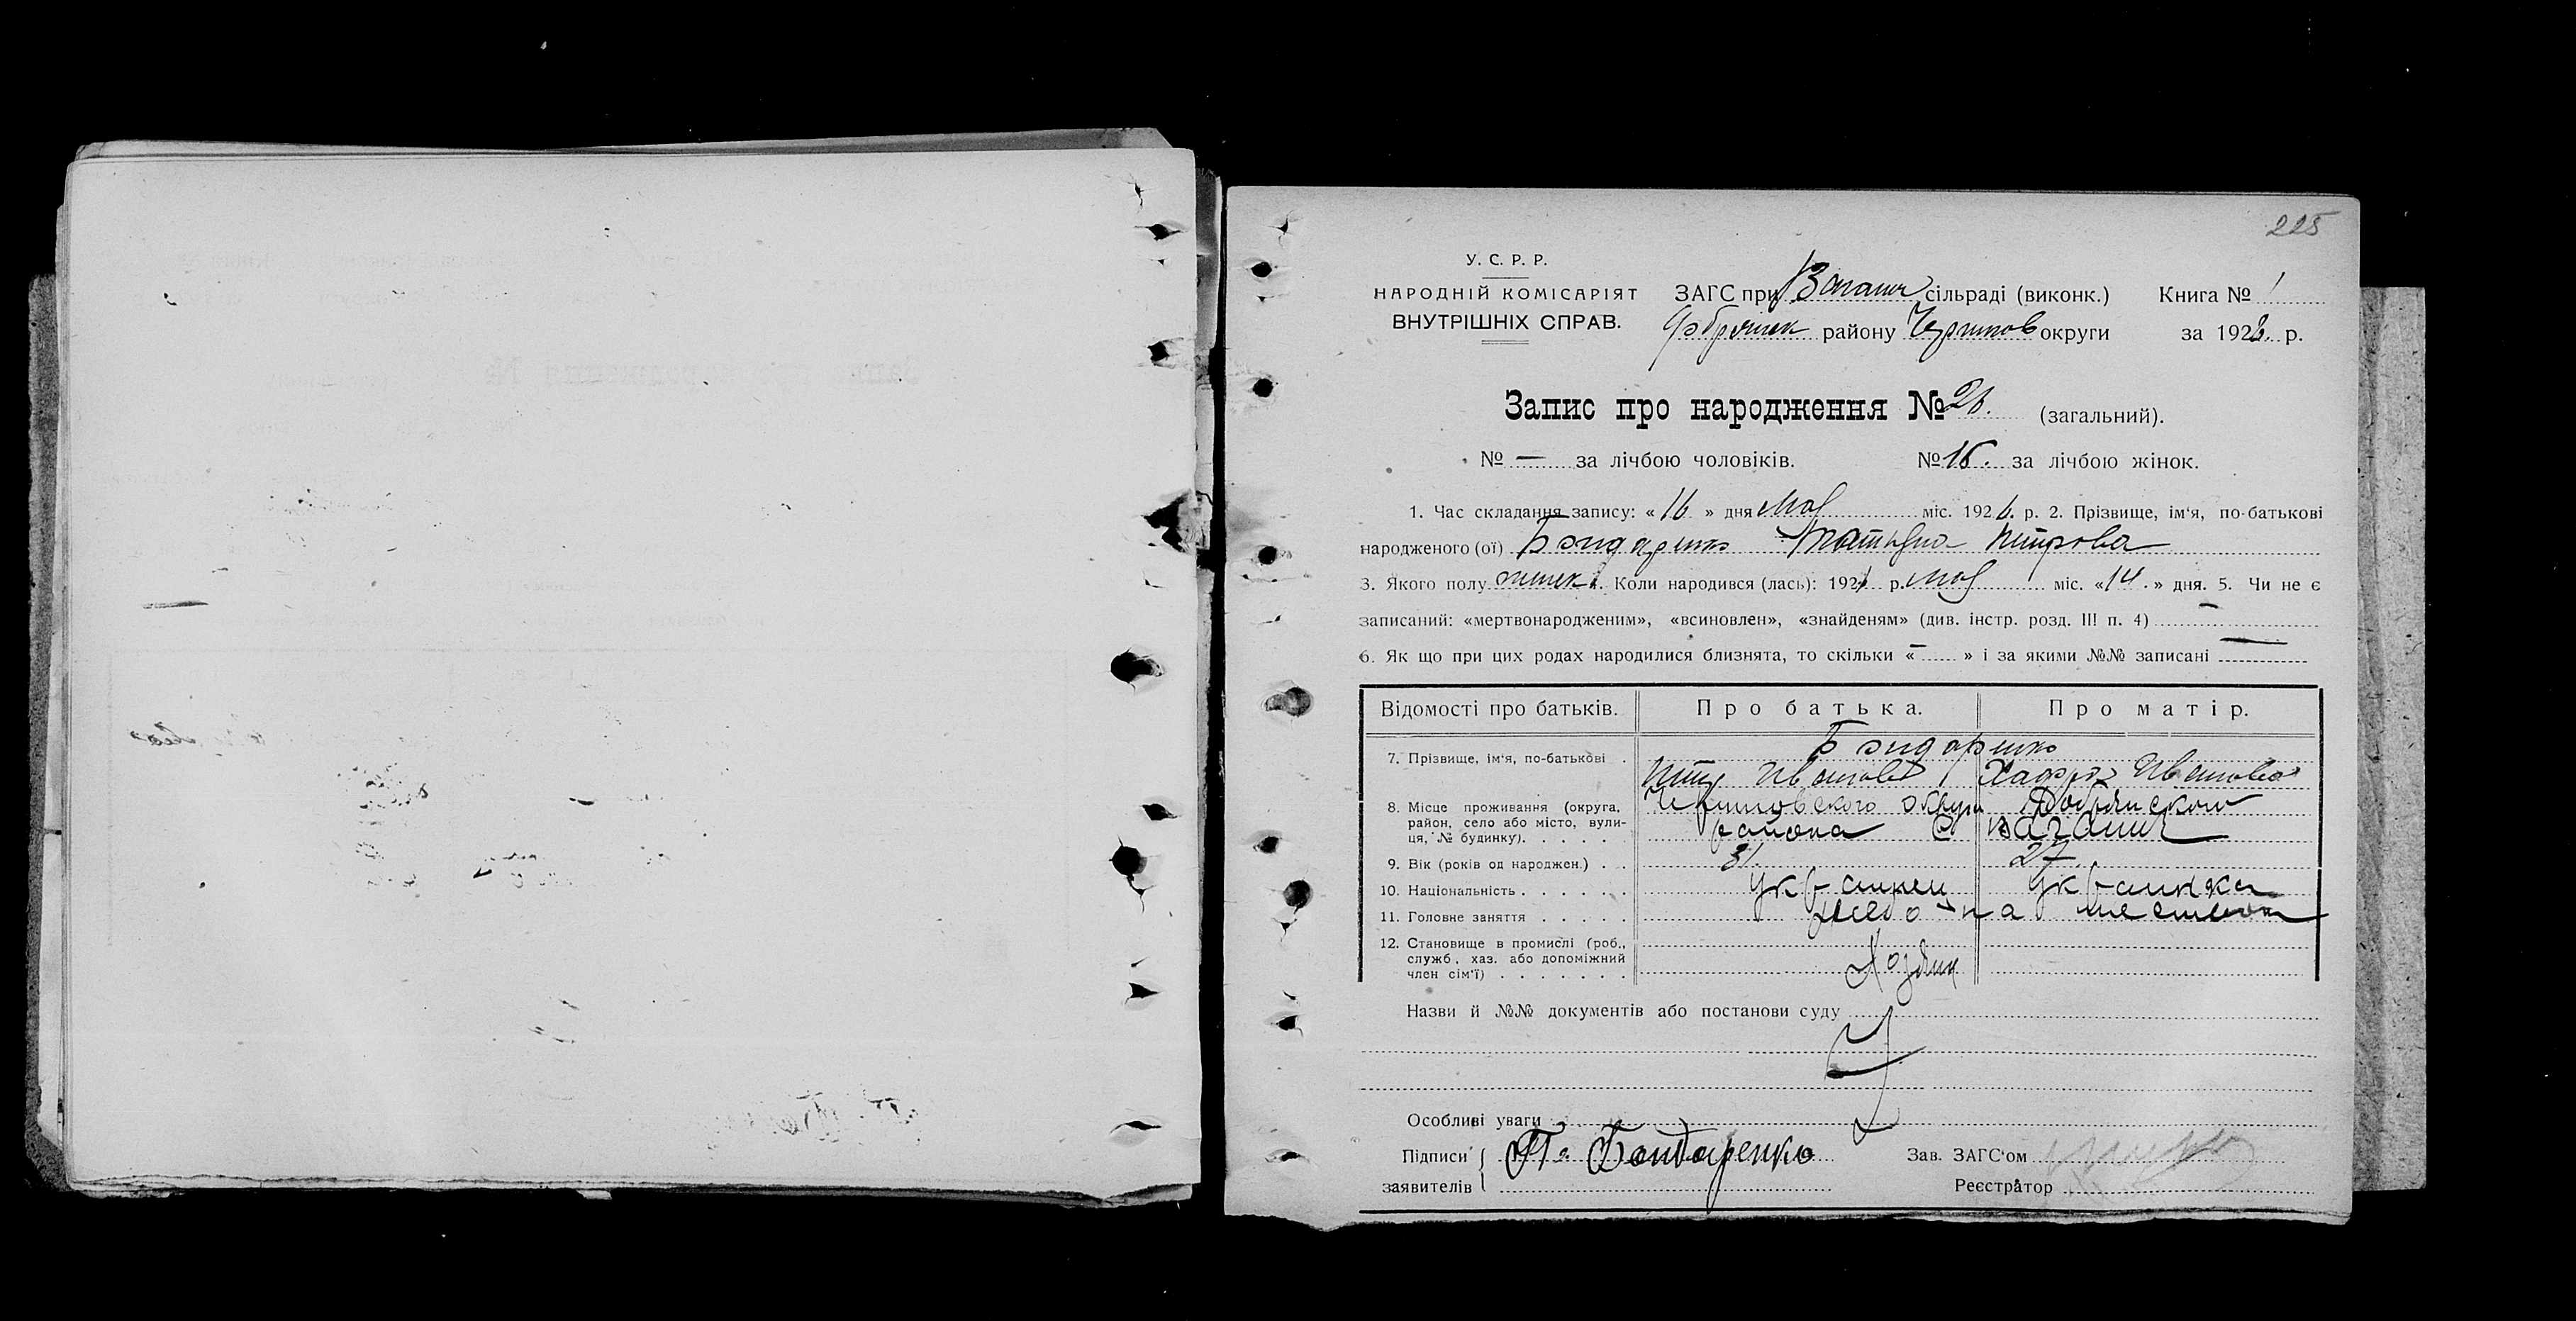 225
У. С. Р. Р.
НАРОДНІЙ КОМІСАРІЯТ
ВНУТРІШНІХ СПРАВ.
ЗАГС при Ваганич сільраді (виконк.) Книга № 1
Добрянск району Чернигов округи за 1926. р.
Запис про народження № 26. (загальний).
№ — за лічбою чоловіків. № 16. за лічбою жінок.
1. Час складання запису: « 16 » дня мая міс. 1926. р. 2. Прізвище, ім'я, по-батькові
народженого (ої) Бондаренко Татьяна Петрова
3. Якого полу женск. 4. Коли народився (лась): 192 р. мая міс. «14.» дня. 5. Чи не є
записаний: «мертвонародженим», «всиновлен», «знайденям» (див. інстр. розд. III п. 4) —
6. Як що при цих родах народилися близнята, то скільки « — » і за якими №№ записані —
Відомості про батьків. Про батька. Про матір.
7. Прізвище, ім'я, по-батькові . Бондаренко
Петр Иванов Ивановна
8. Місце проживання (округа, район, село або місто, вули- ця, № будинку). . . . . . Черниговского округи Добрянского
района С Ваганич
9. Вік (років од народжен.) . . 31. 27.
10. Національність . . . . . . Украинец Украинка
11. Головне заняття . . . . . на
12. Становище в промислі (роб., служб, хаз. або допоміжний член сім'ї) . . . . . . . Хозяин
Назви й №№ документів або постанови суду
Особливі уваги
Підписи заявителів П. Бондаренко
Зав. ЗАГС'ом
Реєстратор